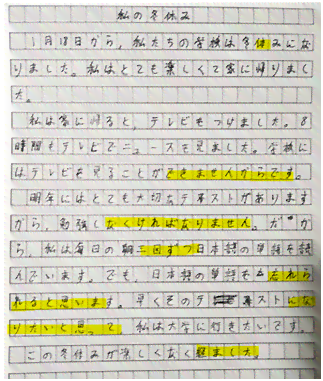 私の冬休み
1月18日から、私たちの学校は冬休みにな
りました。私はとても楽しくて家に帰りまし
た。
私は家に帰ると、テレビをつけました。8
時間もテレビでニュースを見ました。学校に
はテレビを見ることができませんからです。
明年にはとても大切なテストがあります
から、勉強しなくければなりません。だか
ら、私は毎日の朝三回ずつ日本語の単語を読
んでいます。でも、日本語の単語を忘れら
れると思います。早くそのテストにな
りたいと思って、私は大学に行きたいです。
この冬休みが楽しくなく
ました。